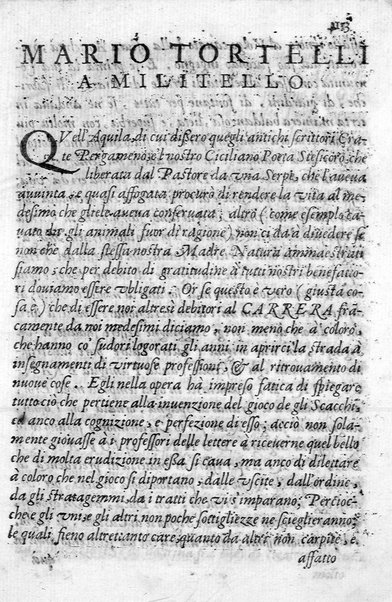 MARIO TORTELLI
A MILITELLO
QVell'Aquila, di cui dissero quegli antichi scrittori Cra-
te Pergameno, e'l nostro Ciciliano Poeta Stesicoro, che
liberata dal Pastore da vna Serpe, che l'aueua
auuinta, e quasi affogata, procurò di rendere la vita al me-
desimo che gliele aueua conseruata; altro (come esemplo ca-
uato da gli animali fuor di ragione) non ci dà a diuedere se
non che dalla stessa nostra Madre Natura ammaestrati
siamo; che per debito di gratitudine a tutti nostri benefatto-
ri douiamo essere vbligati. Or se questo è vero (giusta co-
sa è) che di essere noi altresì debitori al CARRERA fran-
camente da noi medesimi diciamo, non meno che à coloro,
che hanno co' sudori logorati gli anni in aprirci la strada à
insegnamenti di virtuose professioni, & al ritrouamento di
nuoue cose. Egli nella opera hà impreso fatica di spiegare
tutto ciò che pertiene alla inuenzione del gioco de gli Scacchi,
ed anco alla cognizione, e perfezione di esso; acciò non sola-
mente giouasse à i professori delle lettere à riceuerne quel bello
che di molta erudizione in essa si caua, ma anco di dilettare
à coloro che nel gioco si diportano, dalle vscite, dall'ordine,
da gli stratagemmi, da i tratti che vi s'imparano; Percioc-
che, e gli vni, e gli altri non poche sottigliezze ne scieglieranno;
le quali, sieno altretanto care, quanto da altri non carpite, e
affatto